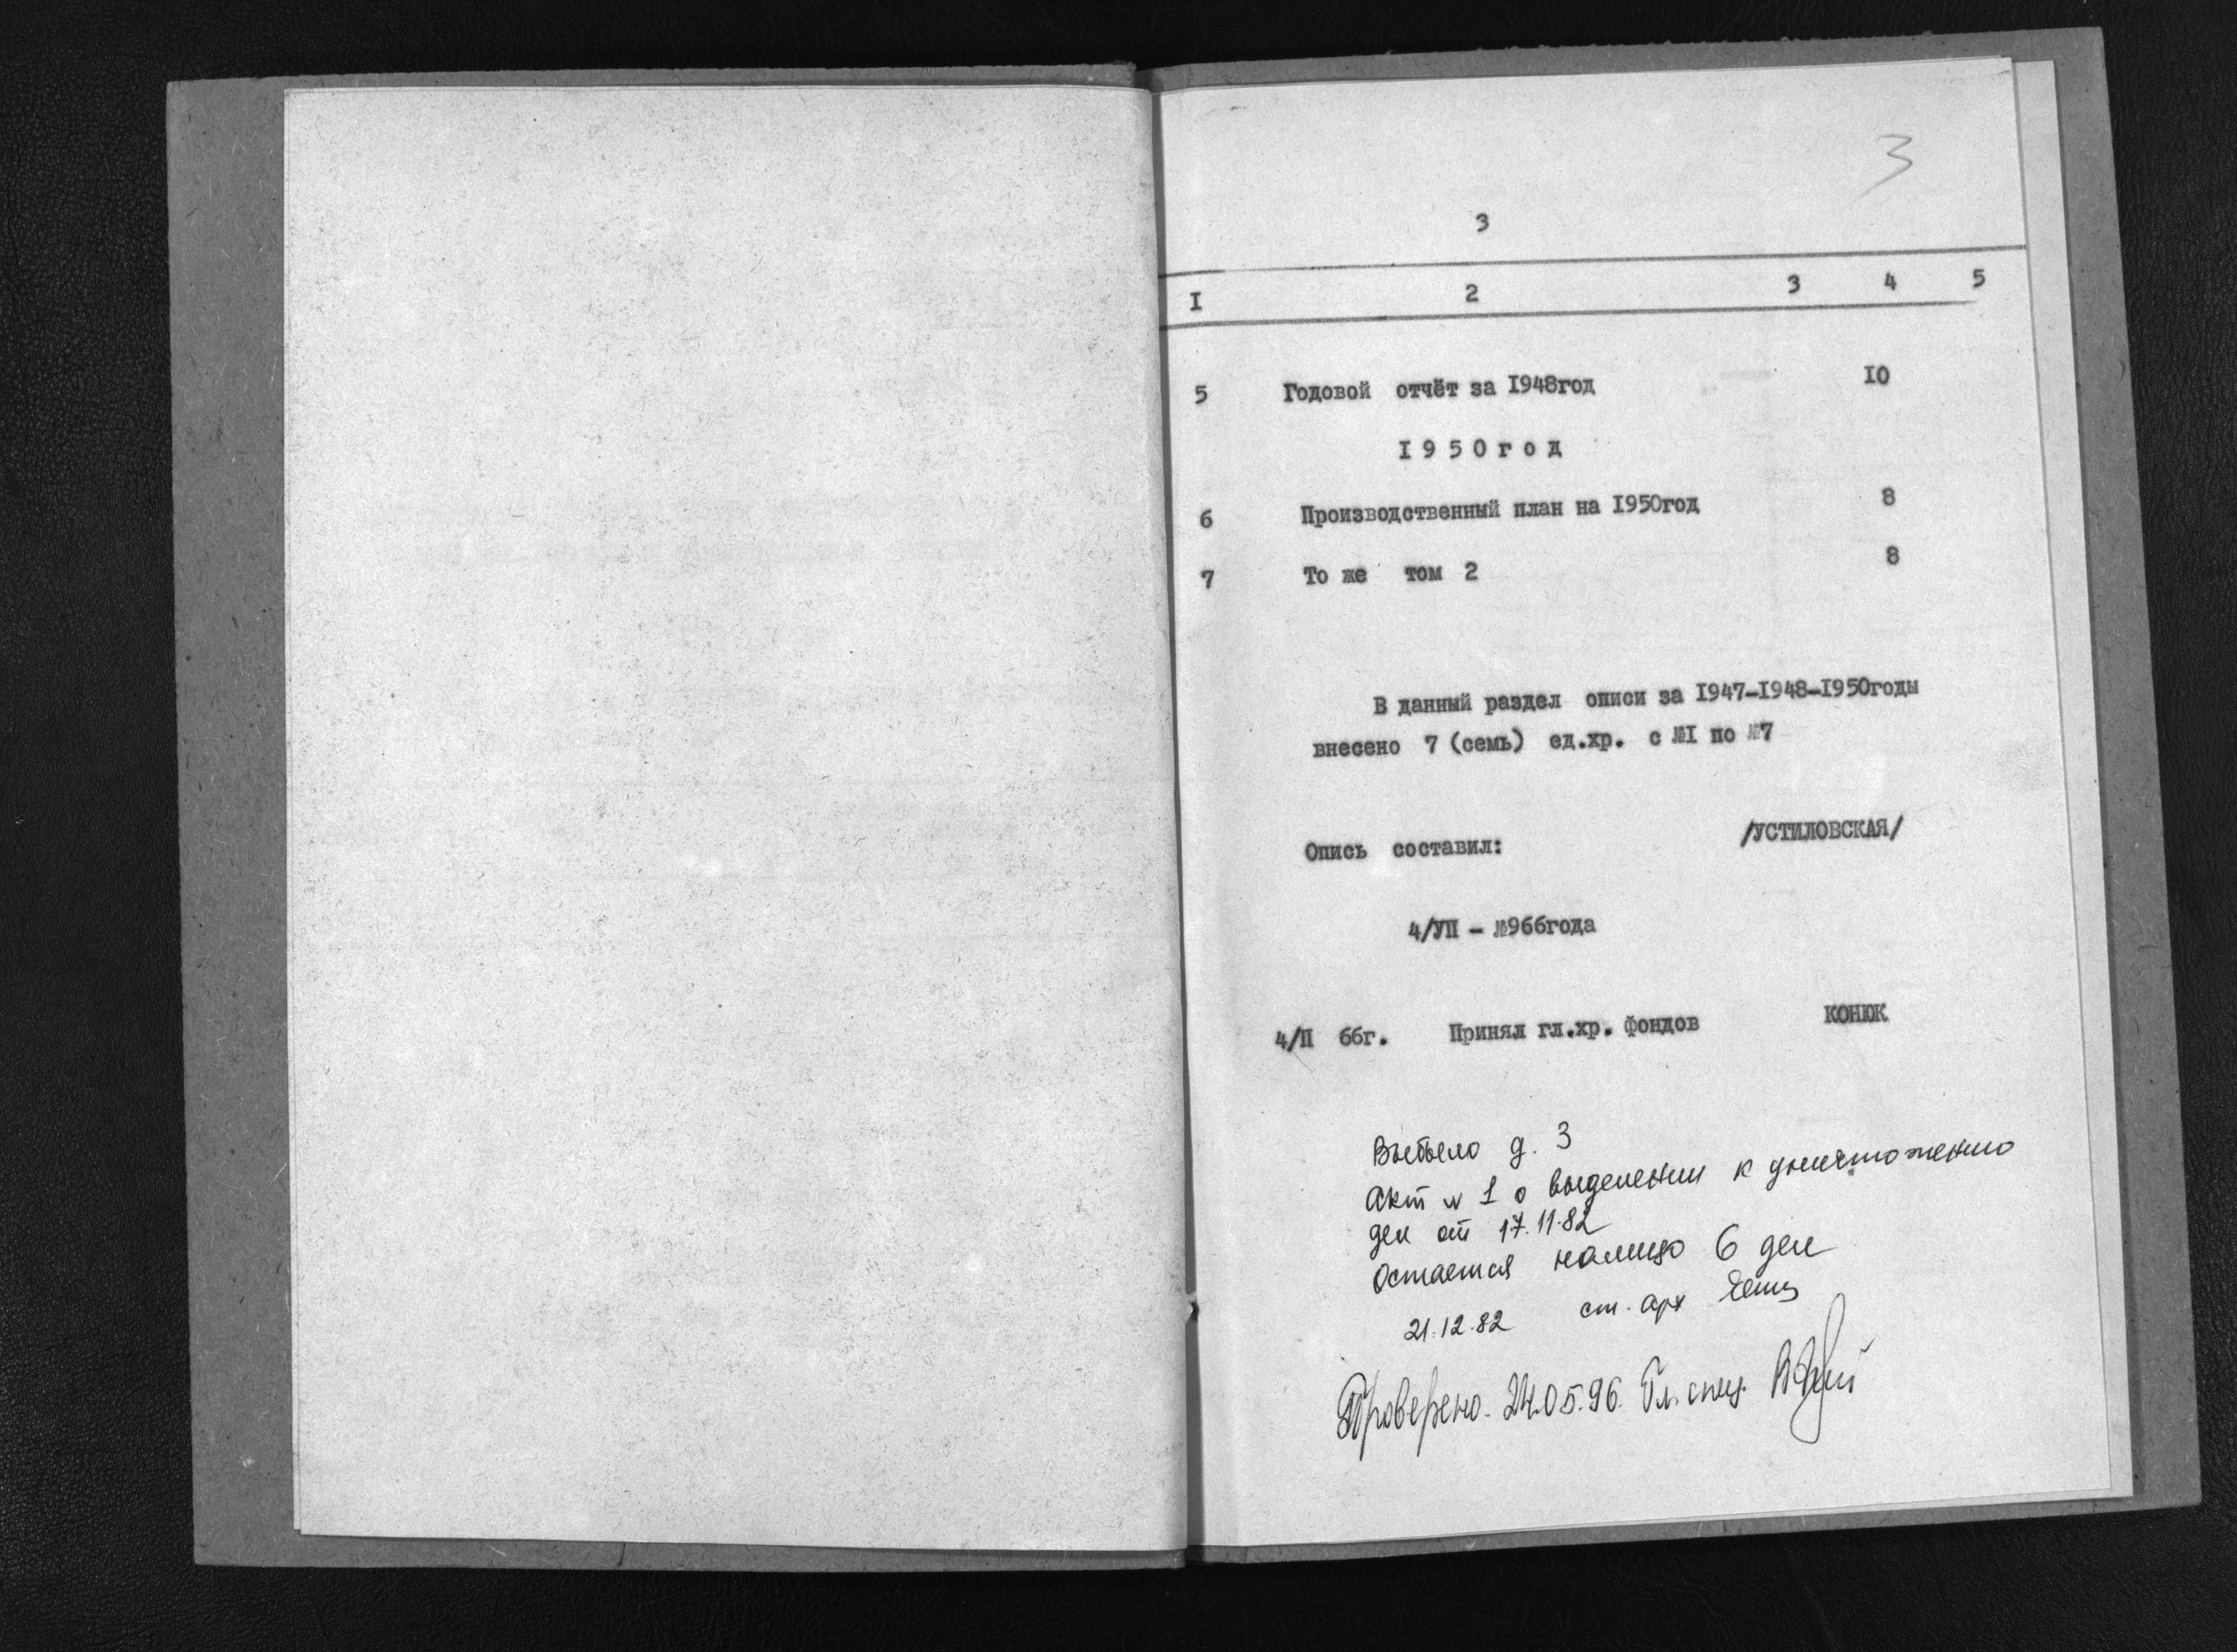 3
3
I 2 3 4 5
5 Годовой отчёт за I948год I0
I 9 5 0 г о д
6 Производственный план на I950год 8
7 То же том 2 8
В данный раздел описи за I947-I948-I950годы
внесено 7 (семь) ед.хр. с №I по №7
Опись составил: /УСТИЛОВСКАЯ/
4/УП - №966года
4/П 66г. Принял гл.хр. фондов КОНЮК
Выбыло д. 3
Акт № 1 о выделении к уничтожению
дел от 17.11.82
Остается налицо 6 дел
21.12.82 ст. арх
Проверено. 24.05.96. Гл. спец.